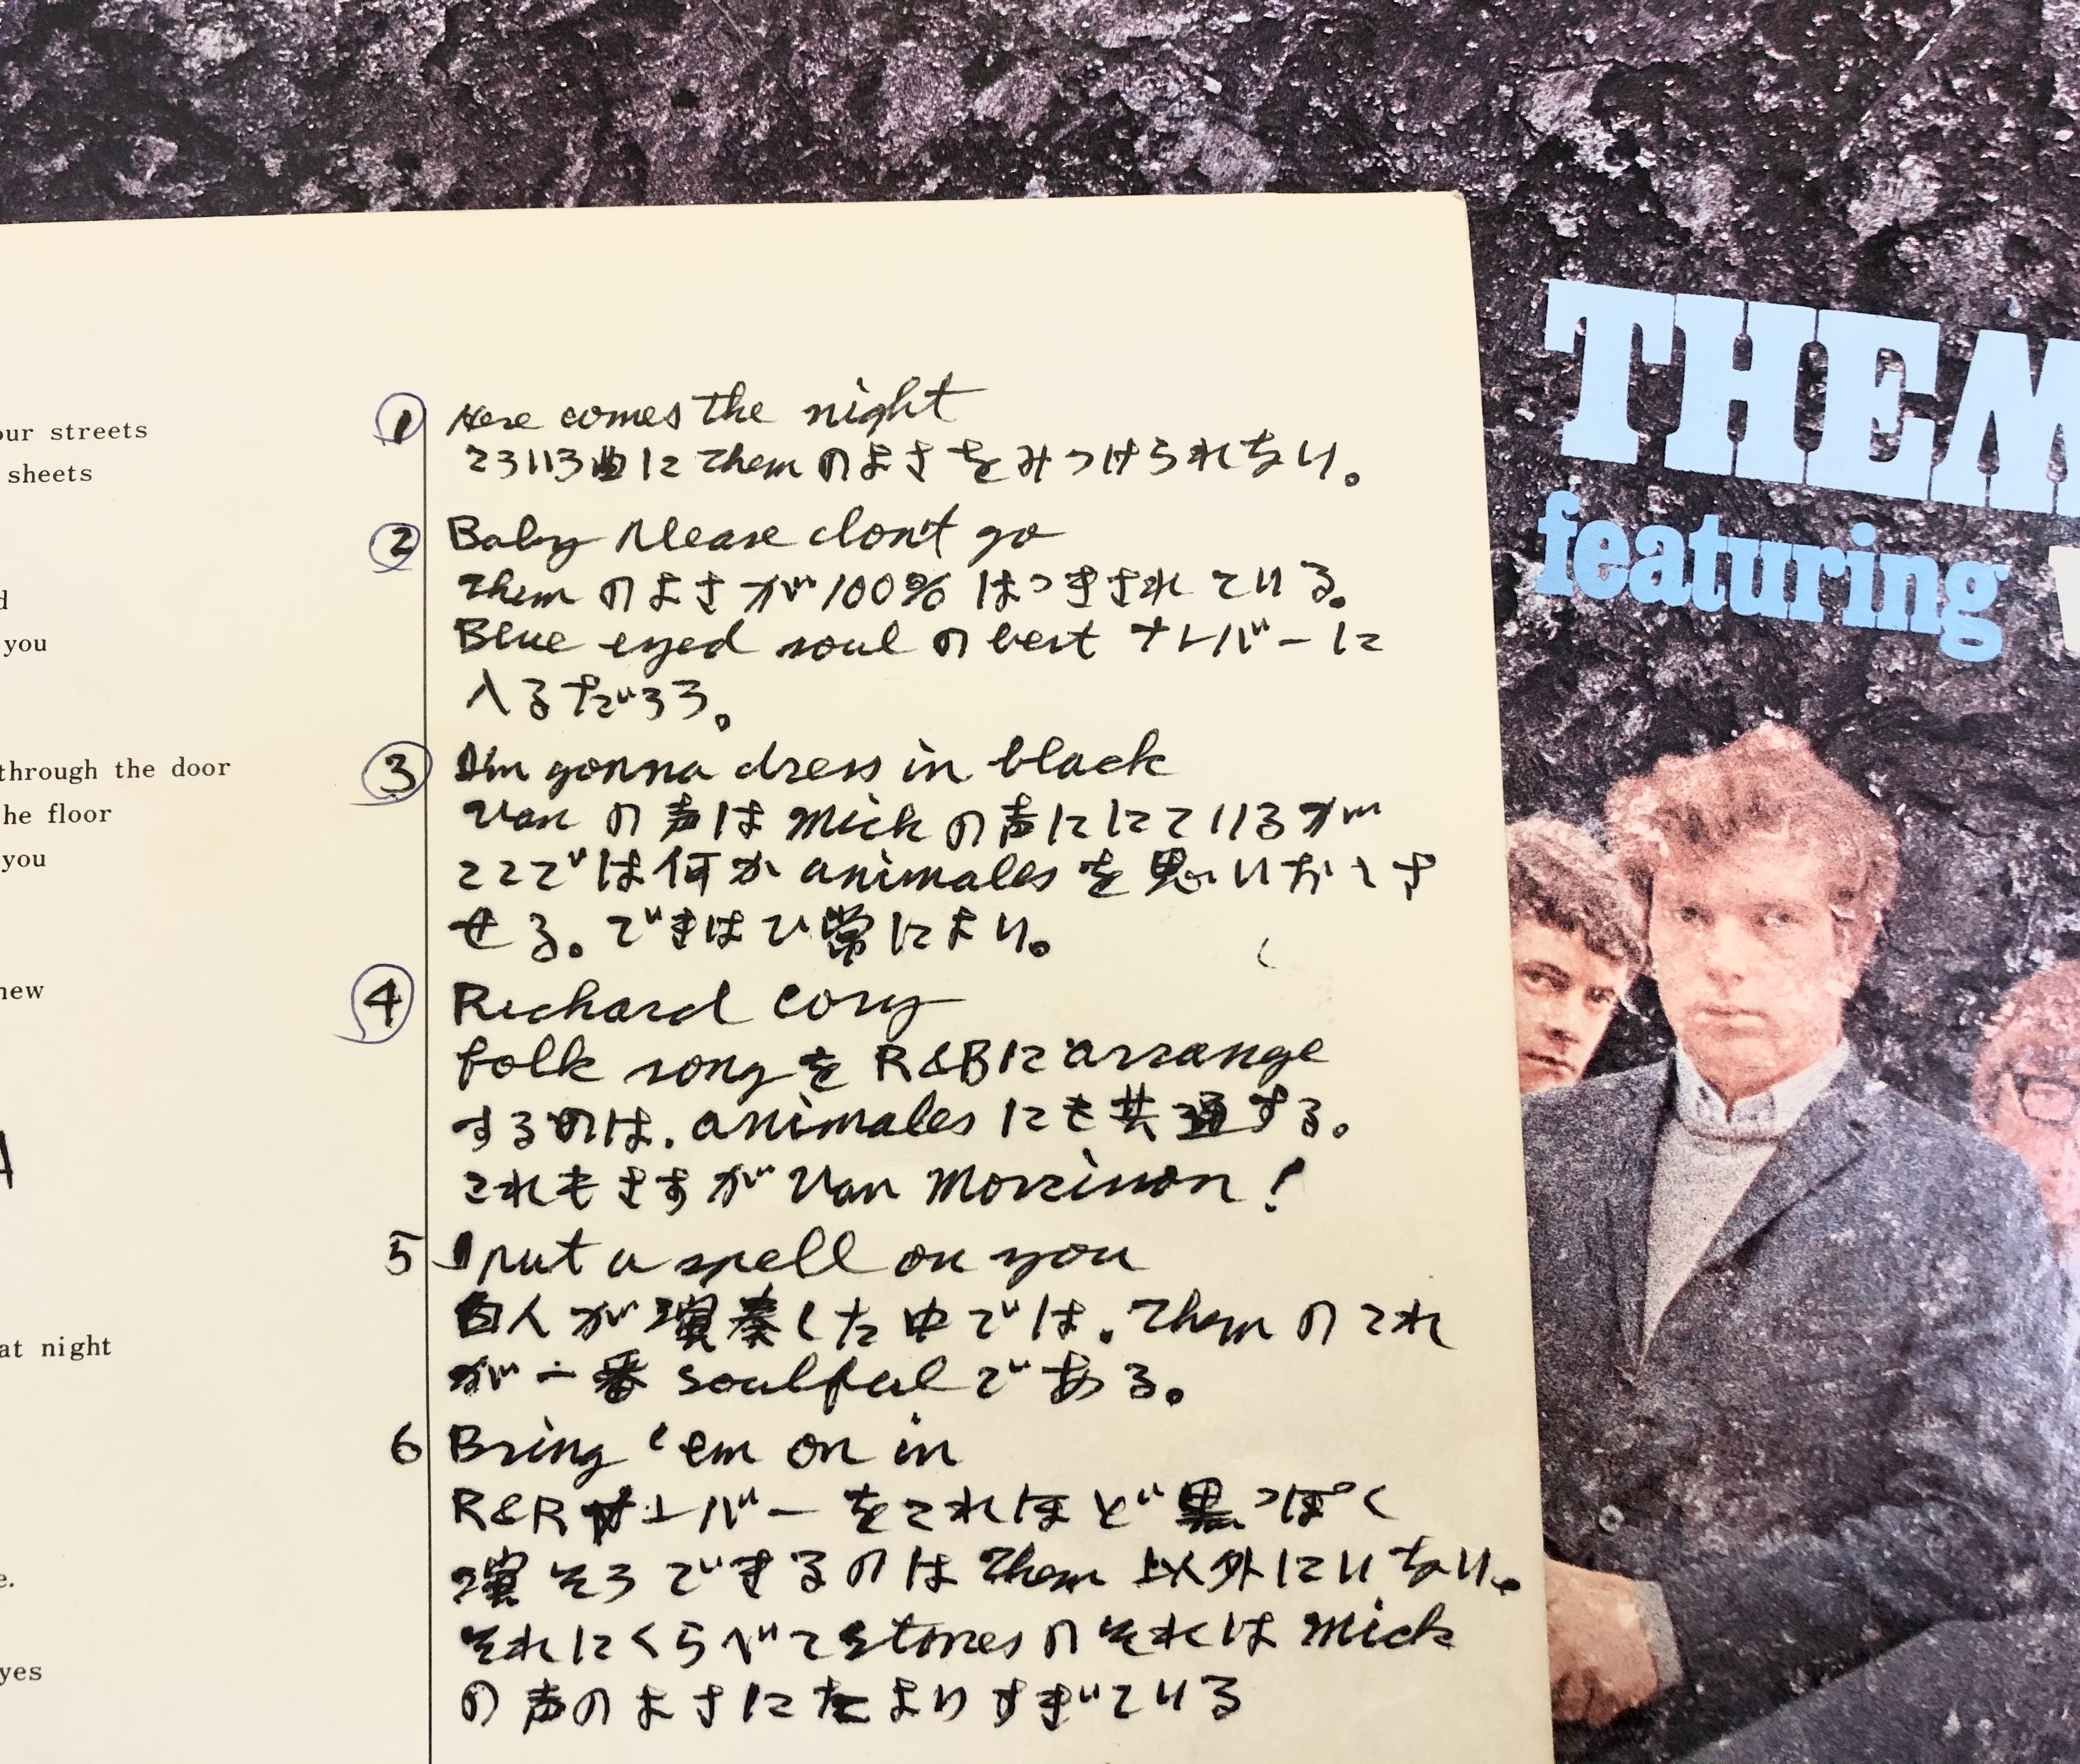 our streets
sheets
d
you
through the door
he floor
you
new
at night
e.
yes
① Here comes the night
こういう曲に Them のよさをみつけられない。
② Baby please don't go
Them のよさが100% はっきされている。
Blue eyed soul の best ナンバーに
入るだろう。
③ I'm gonna dress in black
Van の声は Mick の声ににているが
ここでは何か animales を思いおこさ
せる。できはひ常によい。
④ Richard Cory
folk song を R&Bに arrange
するのは、animales にも共通する。
これもさすが Van Morrison!
5 I put a spell on you
白人が演奏した中では、Them のこれ
が一番 soulful である。
6 Bring 'em on in
R&R ナンバーをこれほど黒っぽく
演そうできるのは Them 以外にいない。
それにくらべて stones のそれは Mick
の声のよさにたよりすぎている
THEM
featuring